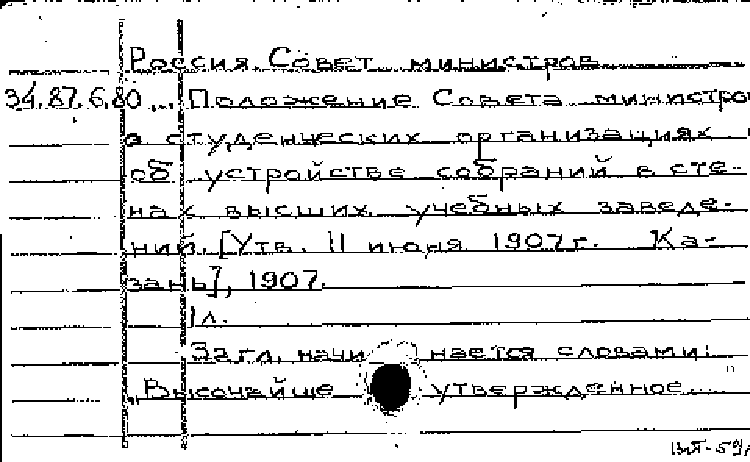 Россия. Совет министров
34.87.6.80 ... Положение Совета министро
о студенческих организациях и
об устройстве собраний в сте-
нах высших учебных заведе-
ний. [Утв. 11 июня 1907 г. Ка-
зань], 1907.
1 л.
Загл. начинается словами:
"Высочайше утвержденное...